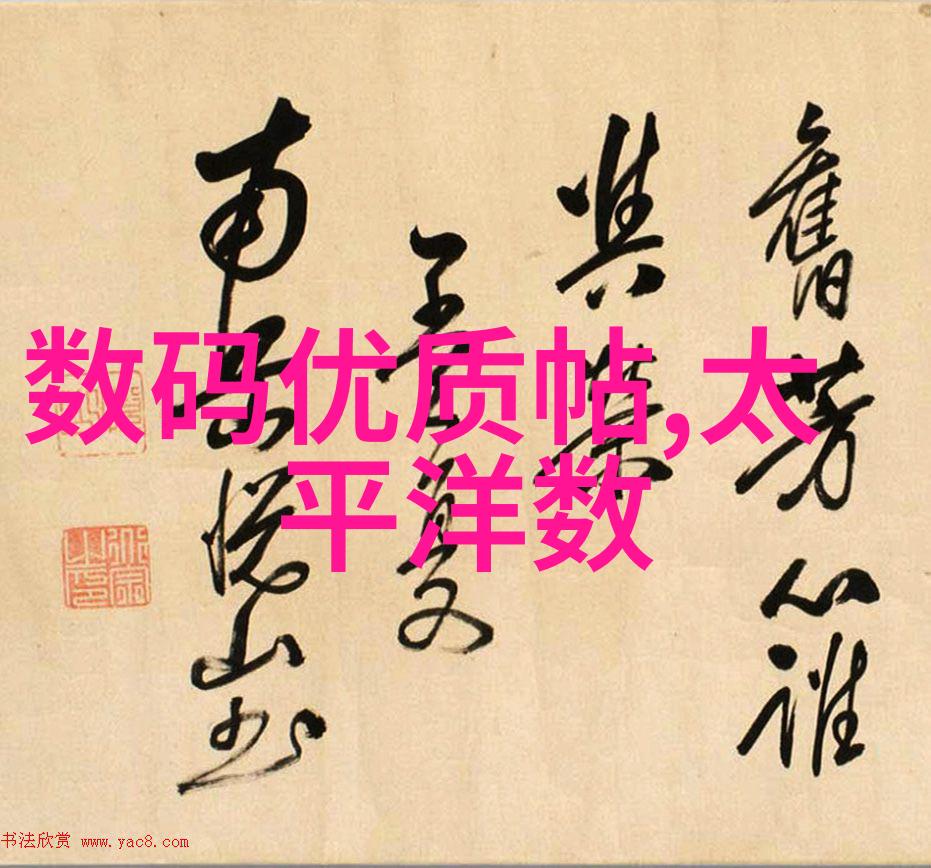 数码优质帖,太
平洋数
舊芳心誰
與
南岳悦山書
书法欣赏 www.yac8.com